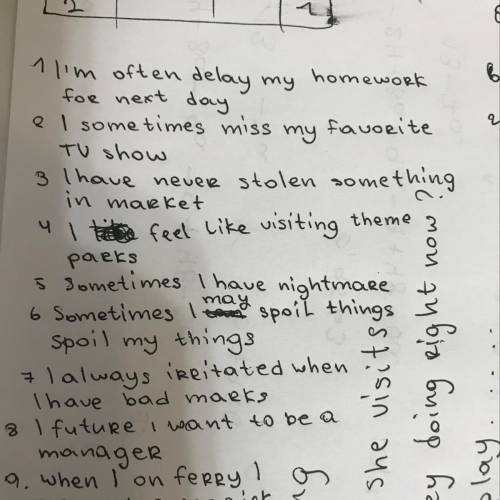 2 1
1 I'm often delay my homework
for next day
2 I sometimes miss my favorite
TV show
3 I have never stolen something
in market
4 I feel like visiting theme
parks
5 Sometimes I have nightmare
6 Sometimes I may spoil things
spoil my things
7 I always irritated when
I have bad marks
8 I future I want to be a
manager
9. when I on ferry I
she visits
doing right now?